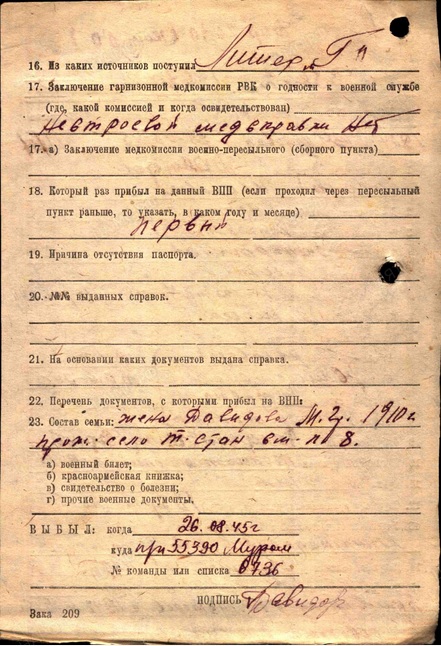 16. Из каких источников поступил Литер „Г"
17. Заключение гарнизонной медкомиссии РВК о годности к военной службе
(где, какой комиссией и когда освидетельствован)
Нестроевой медсправки нет
17. а) Заключение медкомиссии военно-пересыльного (сборного пункта)
18. Который раз прибыл на данный ВПП (если проходил через пересыльный
пункт раньше, то указать, в каком году и месяце)
первый
19. Причина отсутствия паспорта.
20. №№ выданных справок.
21. На основании каких документов выдана справка.
22. Перечень документов, с которыми прибыл на ВПП:
23. Состав семьи: жена Давидова М. 1910 г.
прож. село стан 8.
а) военный билет;
б) красноармейская книжка;
в) свидетельство о болезни;
г) прочие военные документы.
ВЫБЫЛ: когда 26.08.45г
куда при 55390 Муром
№ команды или списка 6736
ПОДПИСЬ Давидов
Зака 209